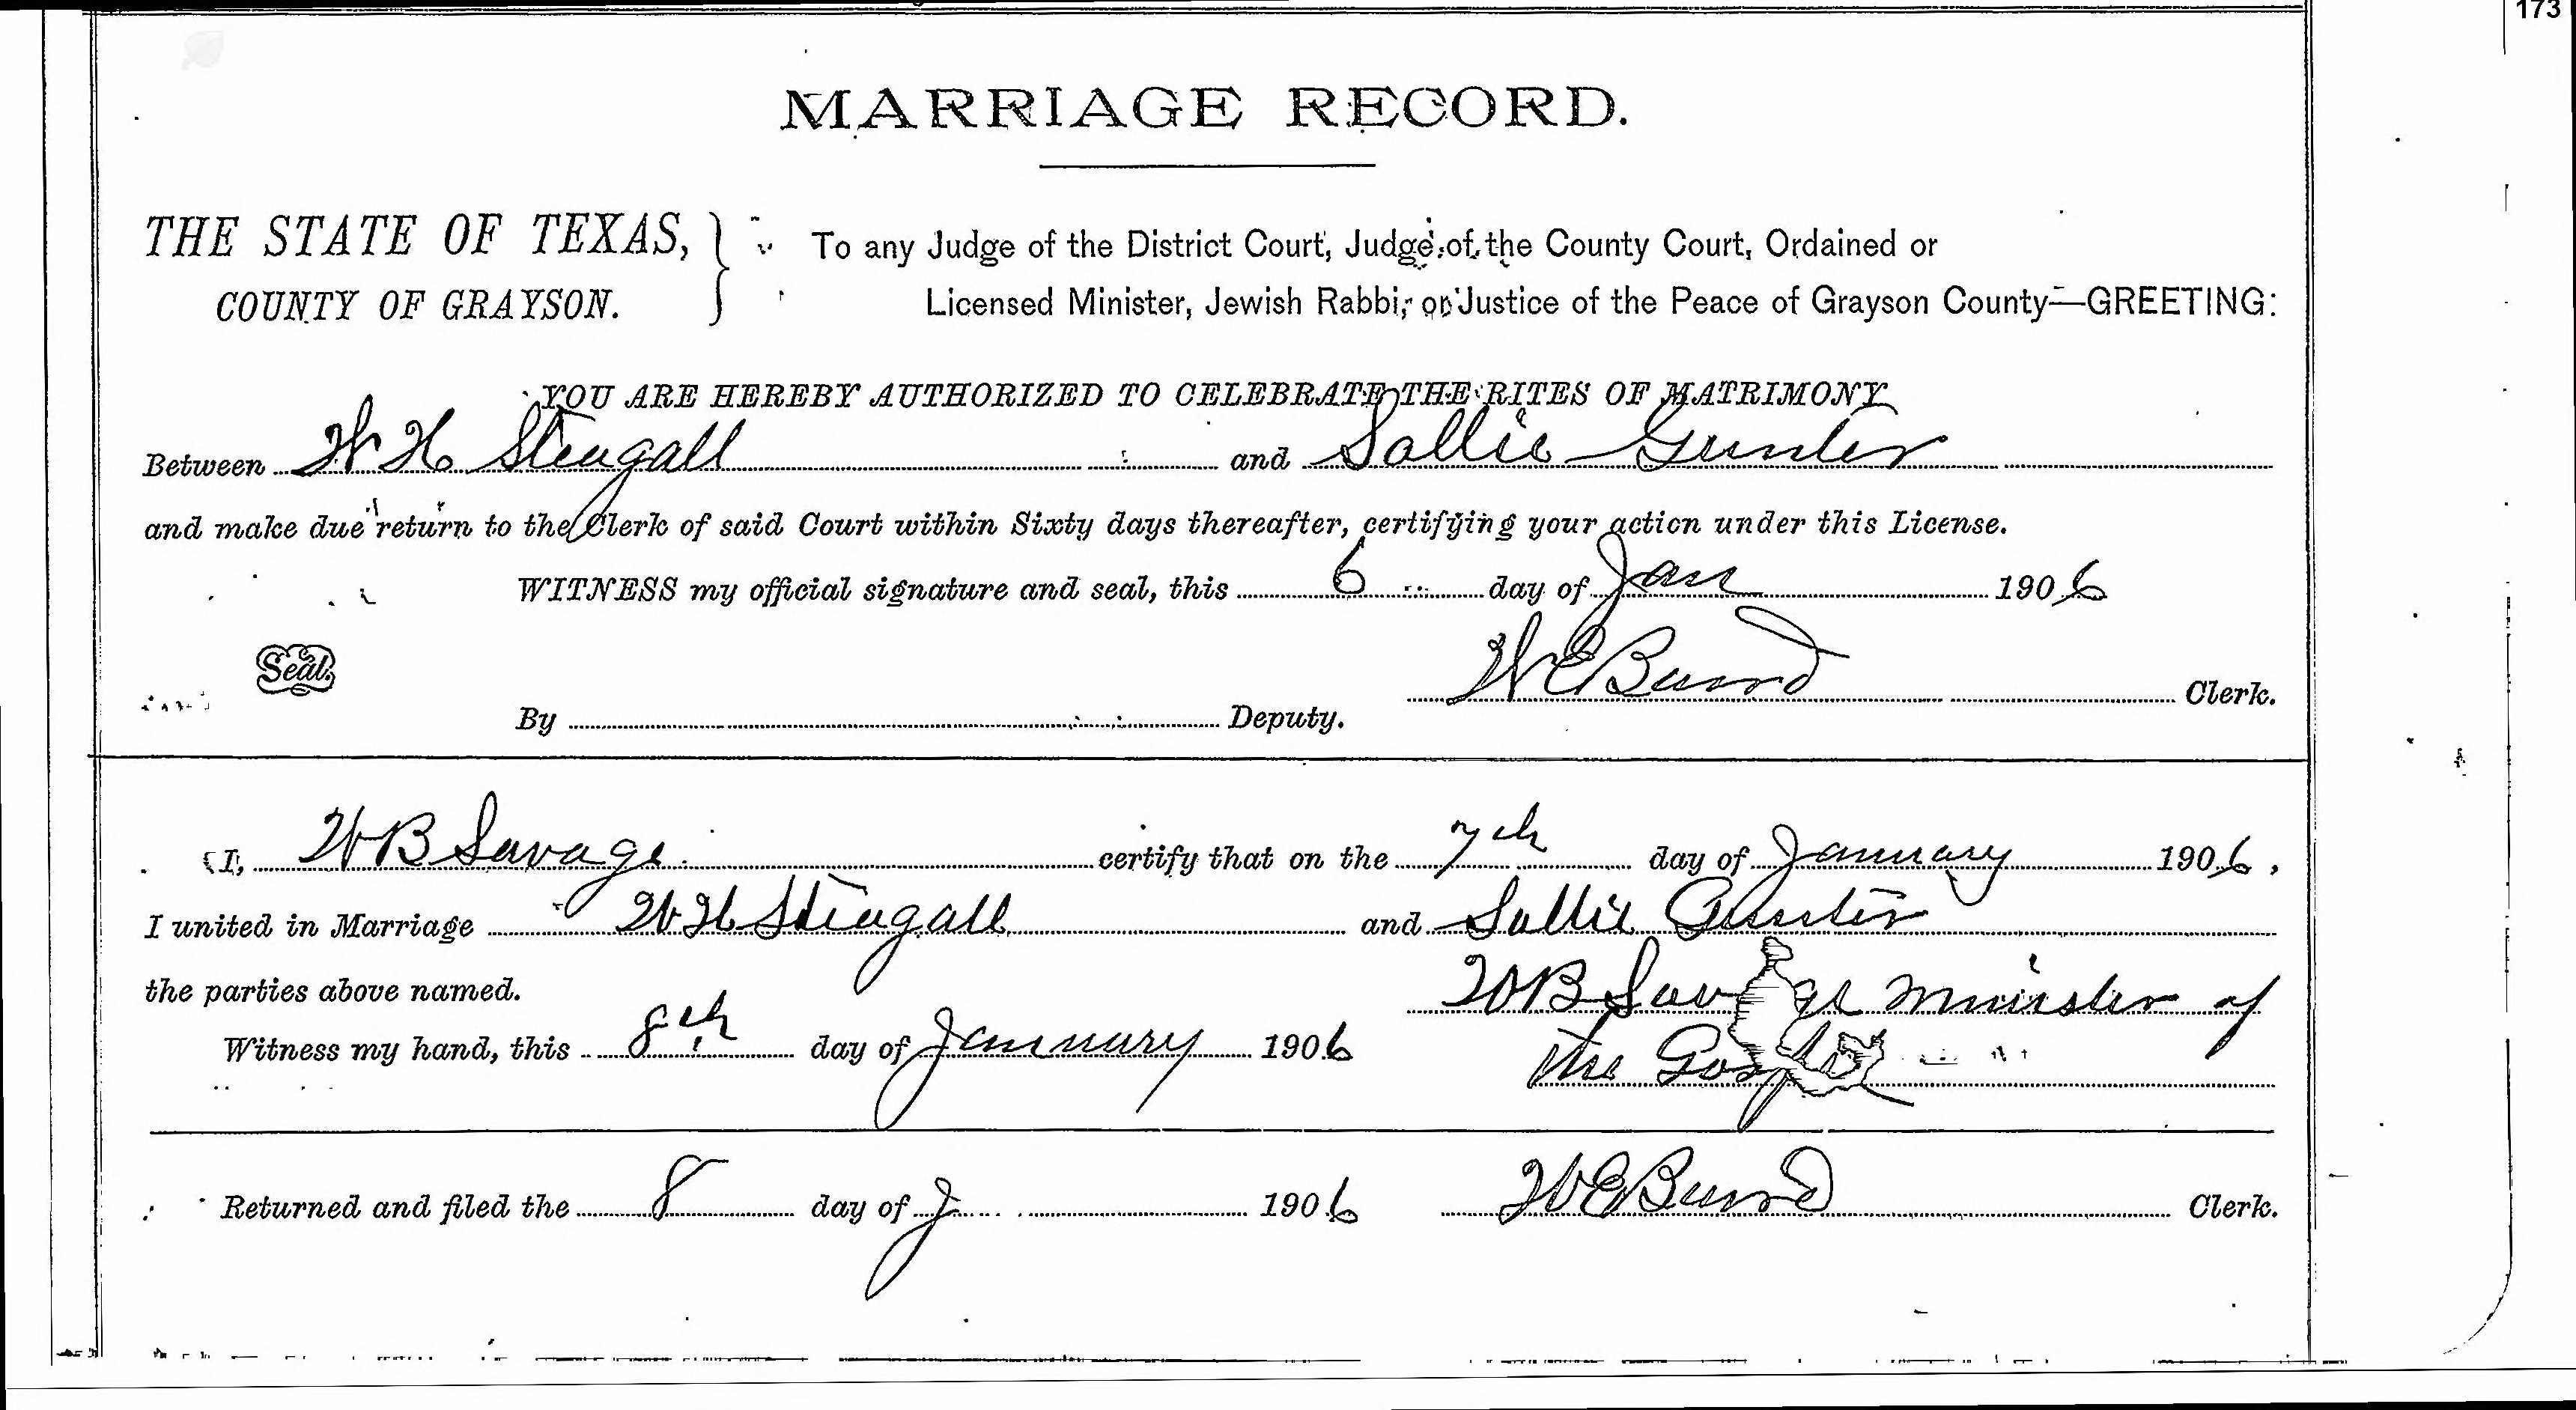 173
MARRIAGE RECORD.
THE STATE OF TEXAS, To any Judge of the District Court, Judge of the County Court, Ordained or
COUNTY OF GRAYSON. Licensed Minister, Jewish Rabbi, or Justice of the Peace of Grayson County—GREETING:
YOU ARE HEREBY AUTHORIZED TO CELEBRATE THE RITES OF MATRIMONY
Between W H Steagall and Sallie Gunter
and make due return to the Clerk of said Court within Sixty days thereafter, certifying your action under this License.
WITNESS my official signature and seal, this 6 day of Jan 1906
Seal.
W E Clerk.
By Deputy.
I, W B Savage certify that on the 7th day of January 1906,
I united in Marriage W H Steagall and Sallie Gunter
the parties above named. W B Savage minister of
Witness my hand, this 8th day of January 1906 the Gospel
Returned and filed the 8 day of J 1906 W E Clerk.